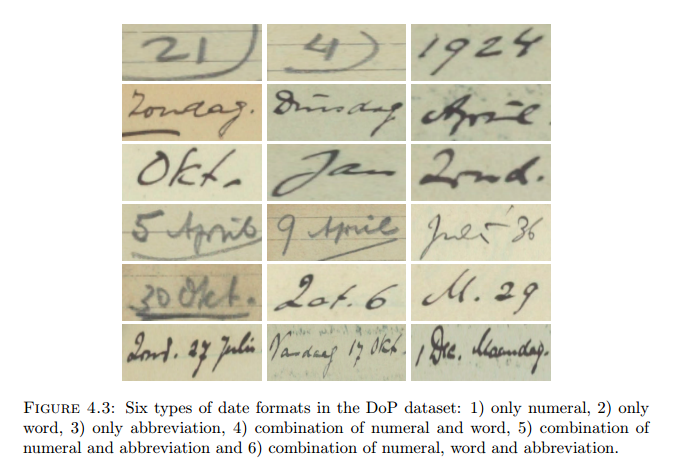 21) 4) 1924
Zondag. Dinsdag April.
Okt. Jan Zond.
5 April 9 April Juli '36
30 Okt. Zat. 6 M. 29
Zond. 27 Julie Vandaag 17 Okt. 1 Dec. Maandag.
FIGURE 4.3: Six types of date formats in the DoP dataset: 1) only numeral, 2) only
word, 3) only abbreviation, 4) combination of numeral and word, 5) combination of
numeral and abbreviation and 6) combination of numeral, word and abbreviation.